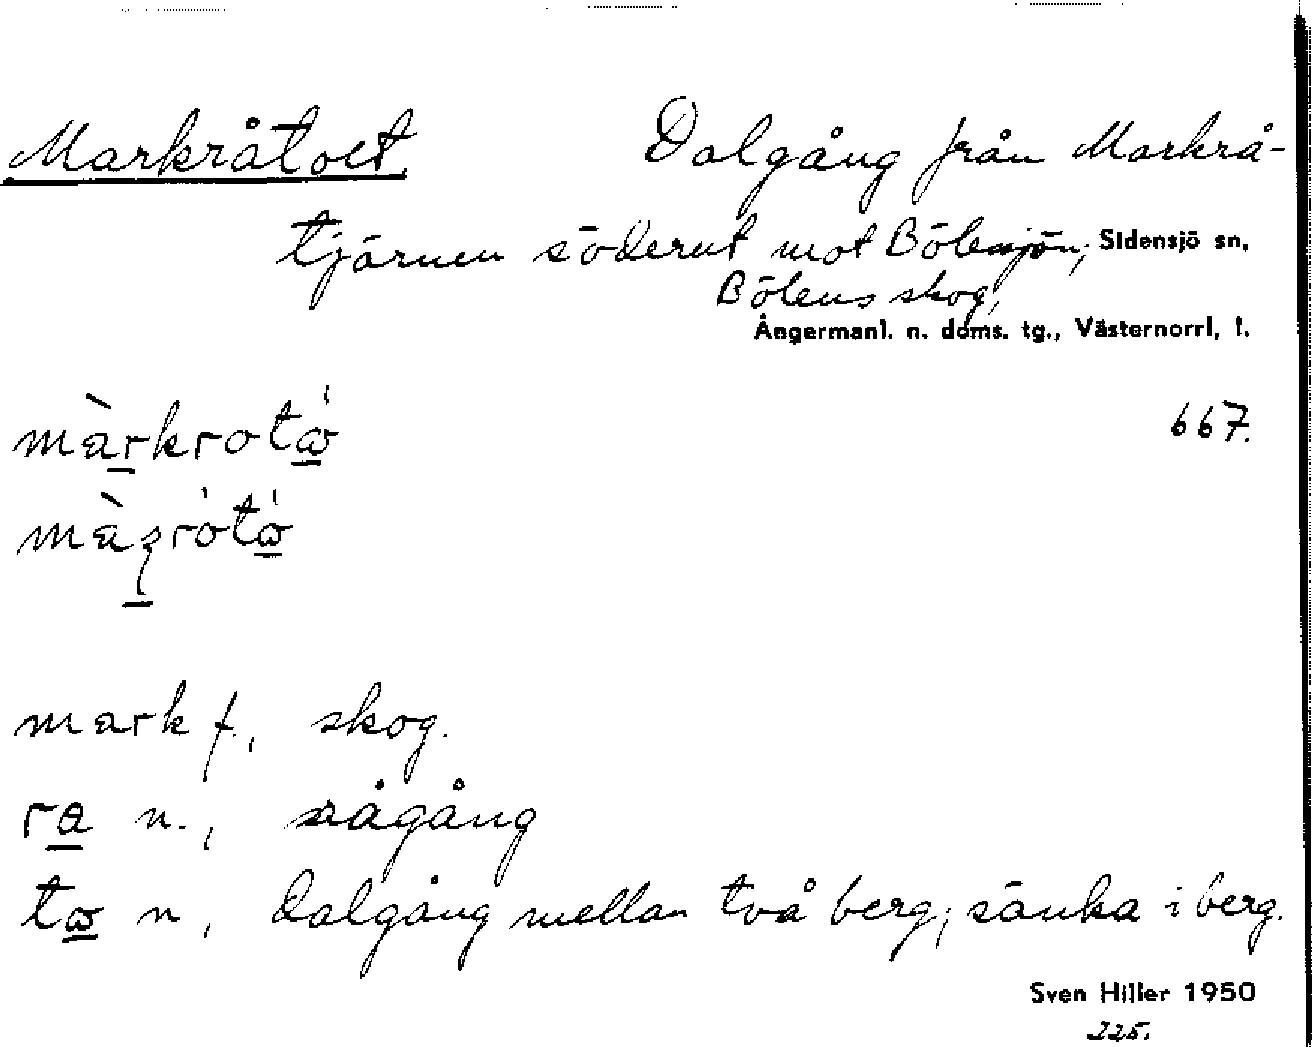 Markråtoet. Dalgång från Markrå-
tjärnen söderut mot Bölesjön, Sidensjö sn,
Bölens skog,
Ångermanl. n. doms. tg., Västernorrl. l.
667.
mark f., skog.
ra n., rågång
tω n, Dalgång mellan två berg; sänka i berg.
Sven Hiller 1950
225.